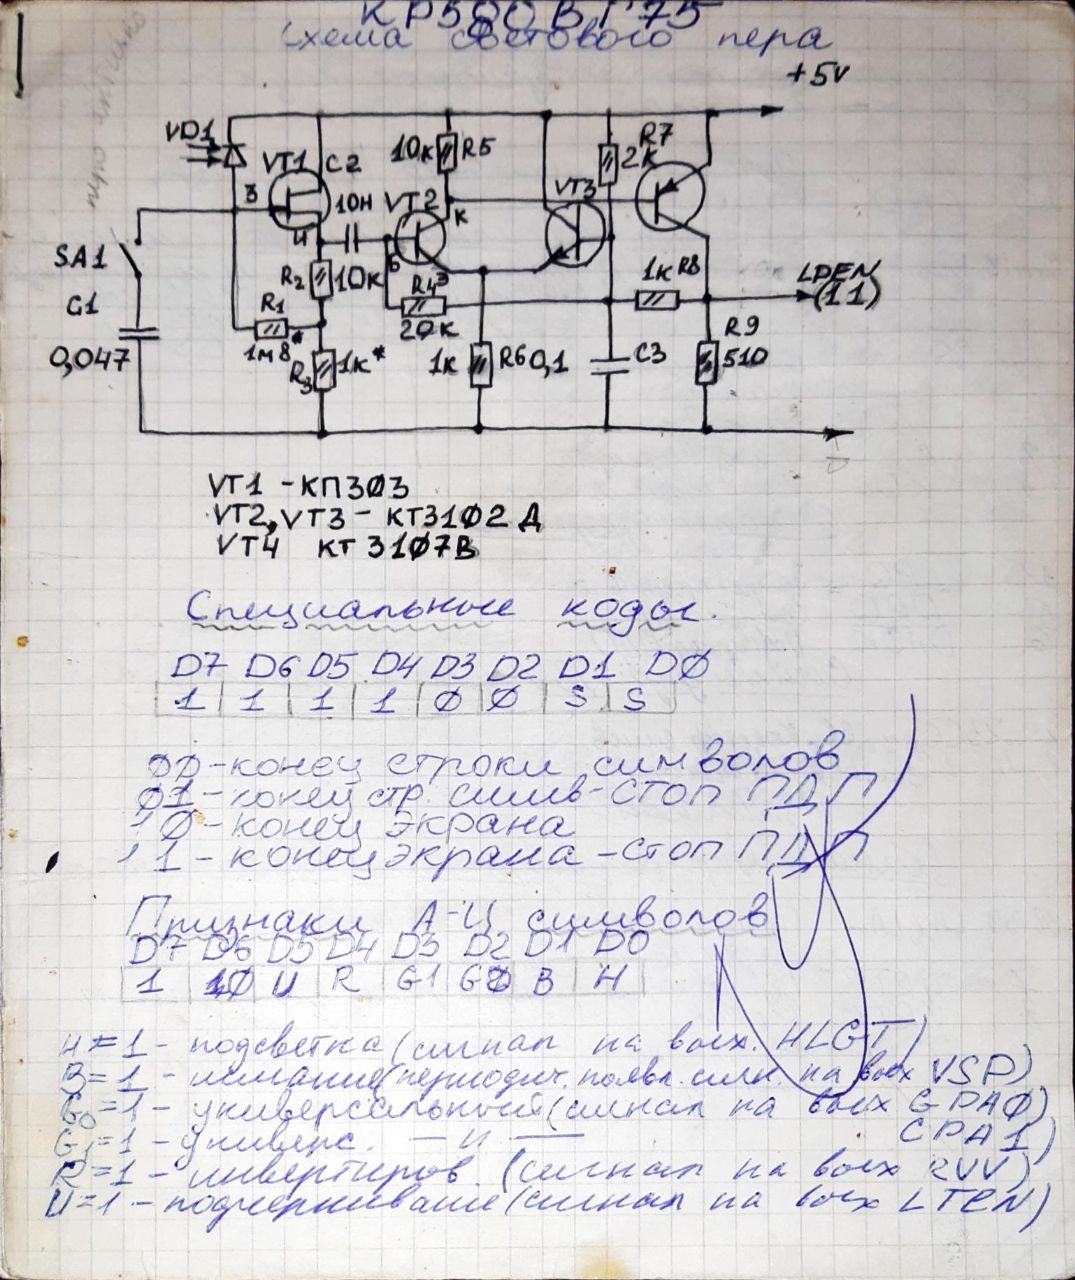 КР580ВГ75
Схема светового пера
+5V
VD1
R7
10к R5
2к
VT1 C2
VT3
З
10Н VT2
К
И
SA1
Б
1к R8 LPEN
R2 10к
R4 Э
(11)
C1
R1
20к
R9
0,047
1м8*
R3 1к*
1к R6 0,1 C3
510
VT1 - КП303
VT2, VT3 - КТ3102 Д
VT4 КТ 3107В
Специальные коды.
D7 D6 D5 D4 D3 D2 D1 D0
1 1 1 1 0 0 S S
00 - конец строки символов
01 - конец стр. симв - стоп ПДП
10 - конец экрана
11 - конец экрана - стоп ПДП
Признаки А-Ц символов
D7 D6 D5 D4 D3 D2 D1 D0
1 0 U R G1 G0 B H
H = 1 - подсветка (сигнал на вых. HLGT)
B = 1 - мигание (периодич. появл. сигн. на вых VSP)
G0 = 1 - универсальный (сигнал на вых GPA0)
G1 = 1 - универс. — и — GPA1)
R = 1 - инвертиров. (сигнал на вых RVV)
U = 1 - подчеркивание (сигнал на вых LTEN)